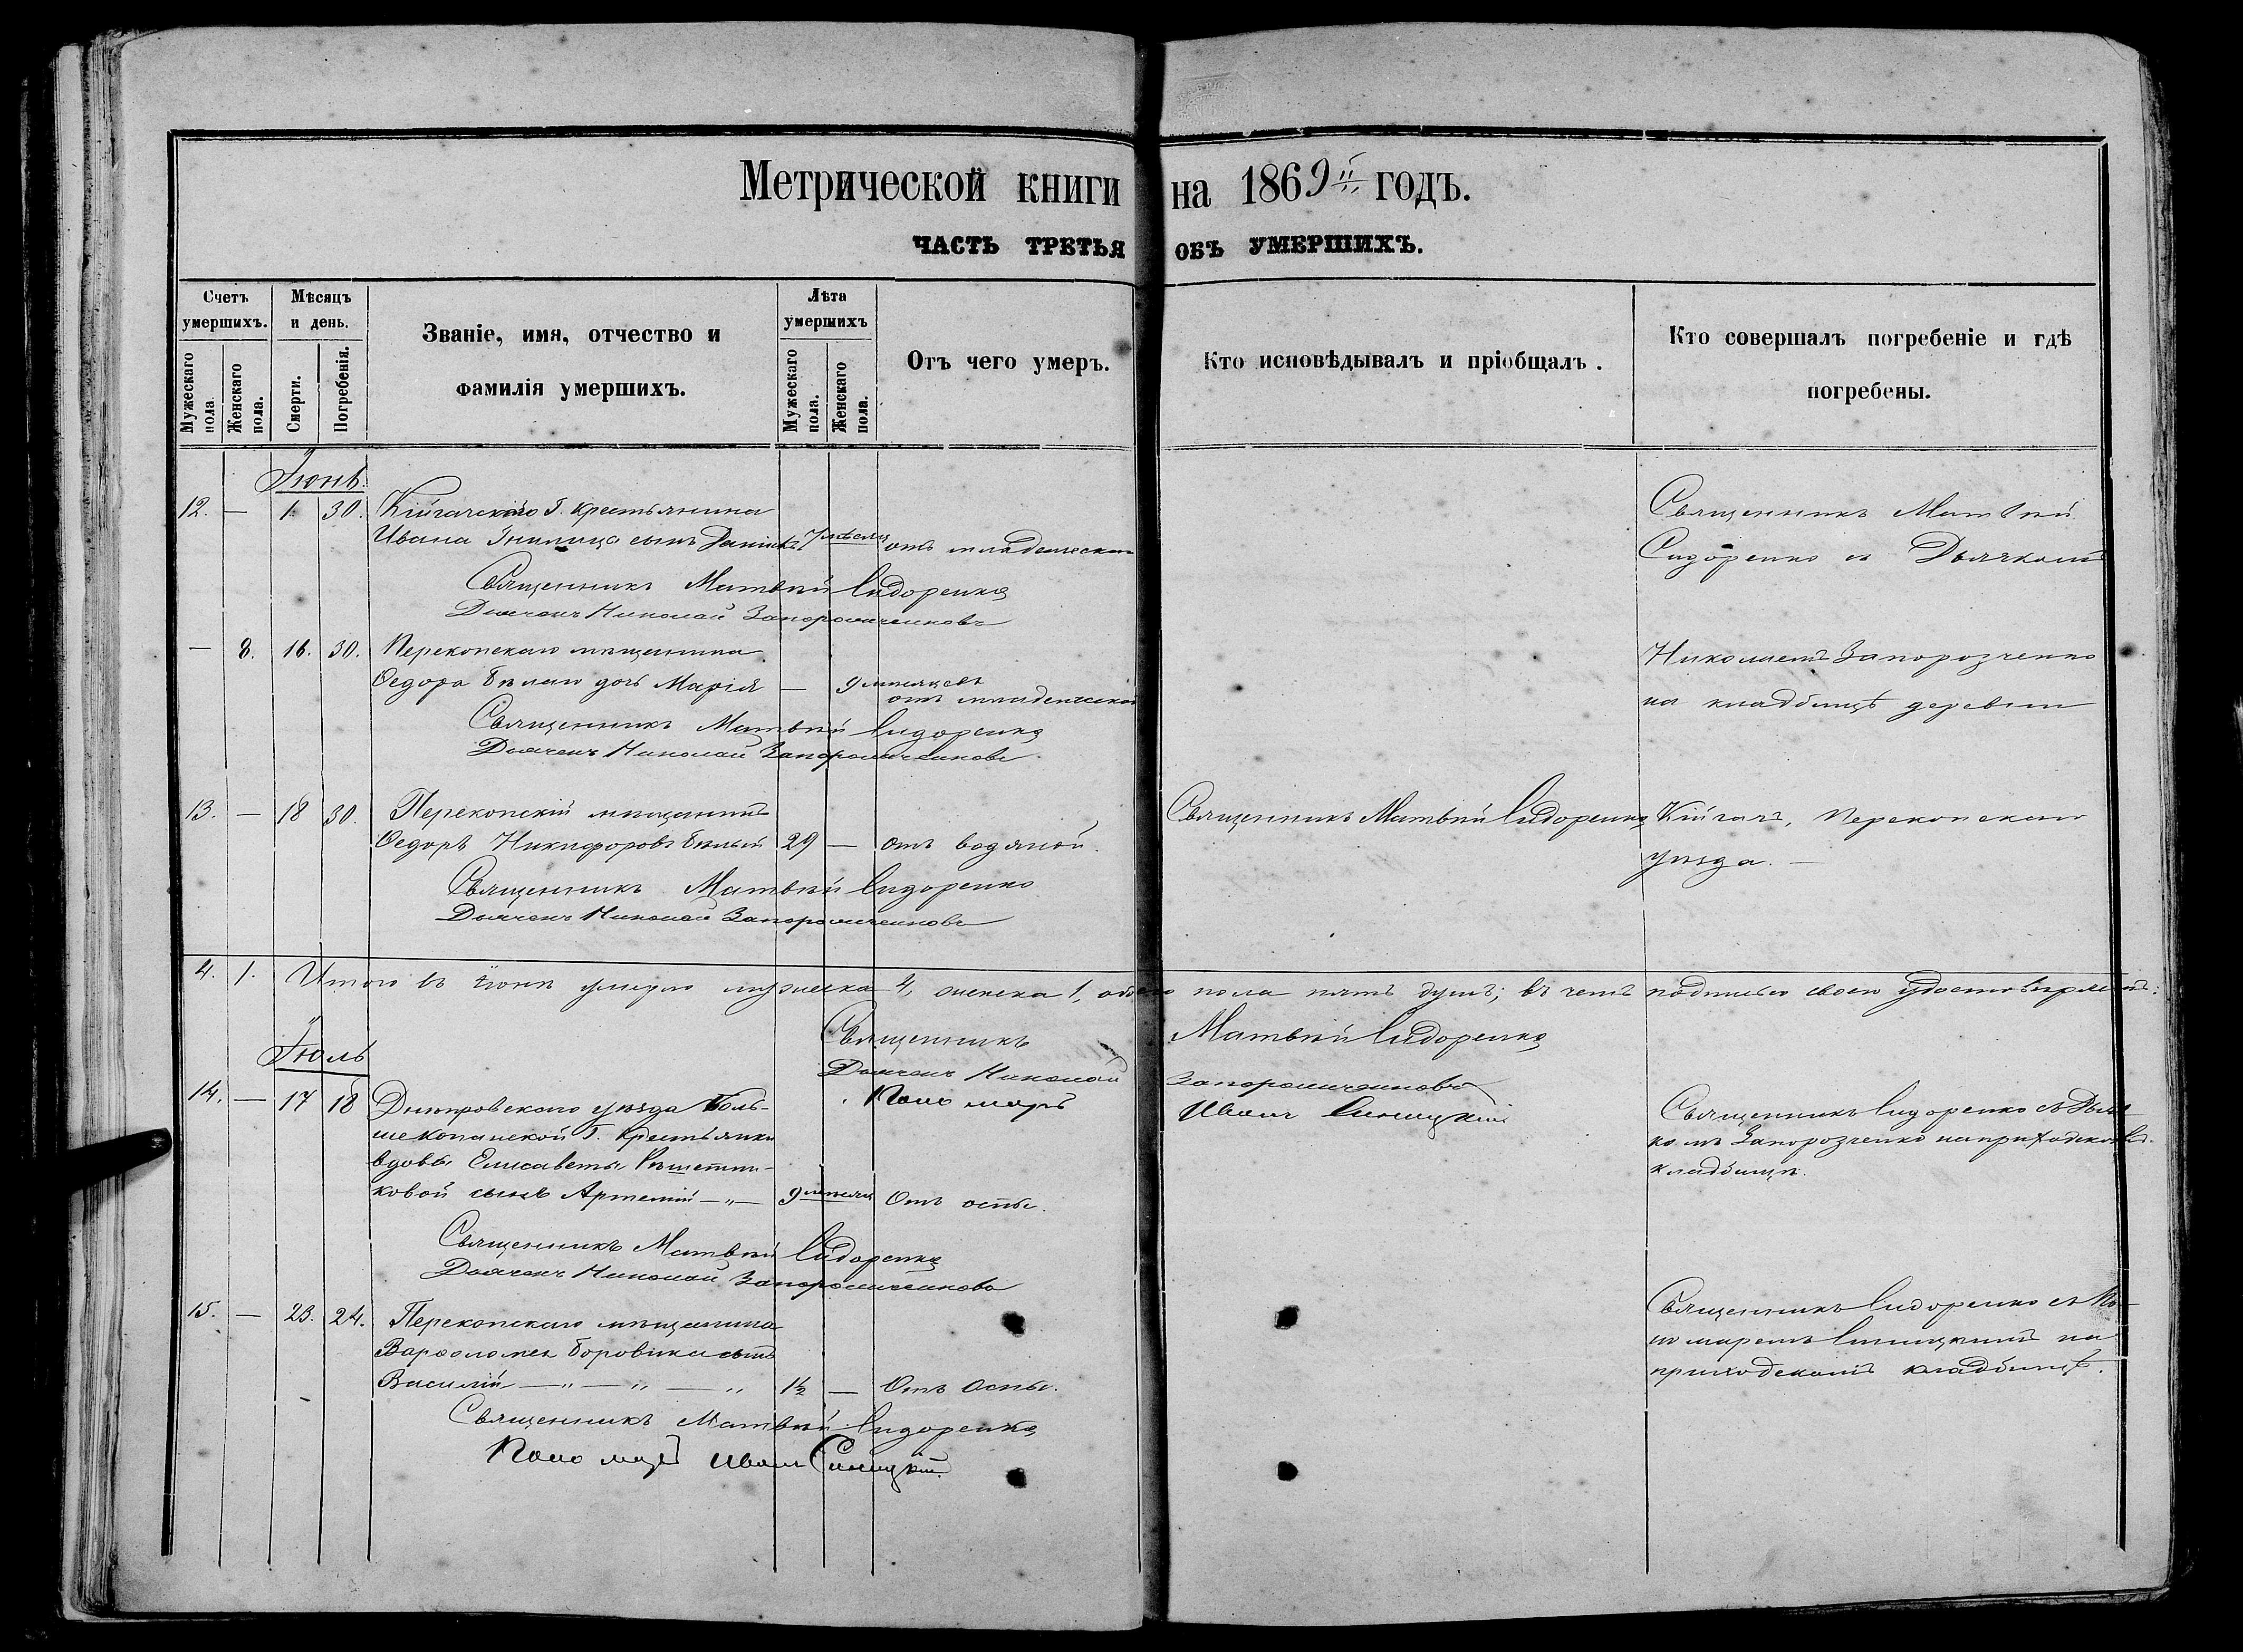 Метрической книги на 1869й годъ.
ЧАСТЬ ТРЕТЬЯ ОБЪ УМЕРШИХЪ.
Счетъ умершихъ.
Мужескаго пола.
Женскаго пола.
Мѣсяцъ и день.
Смерти.
Погребенія.
Званіе, имя, отчество и
фамилія умершихъ.
Лѣта умершихъ
Мужескаго пола.
Женскаго пола.
Отъ чего умеръ.
Кто исповѣдывалъ и пріобщалъ.
Кто совершалъ погребеніе и гдѣ
погребены.
Іюнь
12. — 1 30. крестьянина
Ивана сынъ отъ младенческой
Священникъ Матвѣй Сидоренко
Дьячекъ Николай Запорожченковъ
Священникъ Матвѣй
Сидоренко съ Дьячкомъ
— 8. 16. 30. Перекопскаго мѣщанина
Ѳедора Бѣлаго дочь Марія — 9 мѣсяцевъ
отъ младенческой
Священникъ Матвѣй Сидоренко
Дьячекъ Николай Запорожченковъ
Николаемъ Запорозченко
на кладбищѣ деревни
13. — 18 30. Перекопскій мѣщанинъ
Ѳедоръ Никифоровъ Бѣлый 29 — отъ водяной.
Священникъ Матвѣй Сидоренко
Священникъ Матвѣй Сидоренко
Дьячекъ Николай Запорожченковъ
Кійгачъ, Перекопскаго
уѣзда. —
4. 1. Итого въ Іюнѣ умерло мужеска 4, женска 1, обоего пола пять душъ; въ чемъ подписью своею удостовѣряемъ:
Священникъ Матвѣй Сидоренко
Дьячекъ Николай Запорожченковъ
Пономарь Иванъ Синицкій
Іюль
14. — 17 18 Днѣпровскаго уѣзда Боль-
шекопанской крестьянки
вдовы Елисаветы Рѣшетни-
ковой сынъ Артемій — „ — 9 Отъ оспы.
Священникъ Матвѣй Сидоренко
Дьячекъ Николай Запорожченковъ
Священникъ Сидоренко съ Дьяч-
комъ Запорозченко на приходскомъ
кладбищѣ.
15. — 23. 24. Перекопскаго мѣщанина
Варѳоломея Боровика сынъ
Василій — „ — „ — „ 1½ — Отъ Оспы.
Священникъ Матвѣй Сидоренко
Пономарь Иванъ Синицкій
Священникъ Сидоренко съ По-
номаремъ Синицкимъ на
приходскомъ кладбищѣ.